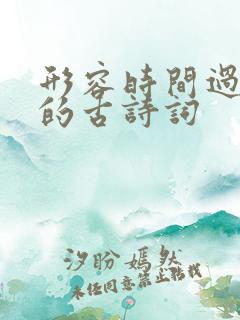 形容時間過
的古詩詞
汐盼嫣然
未经同意禁止转载